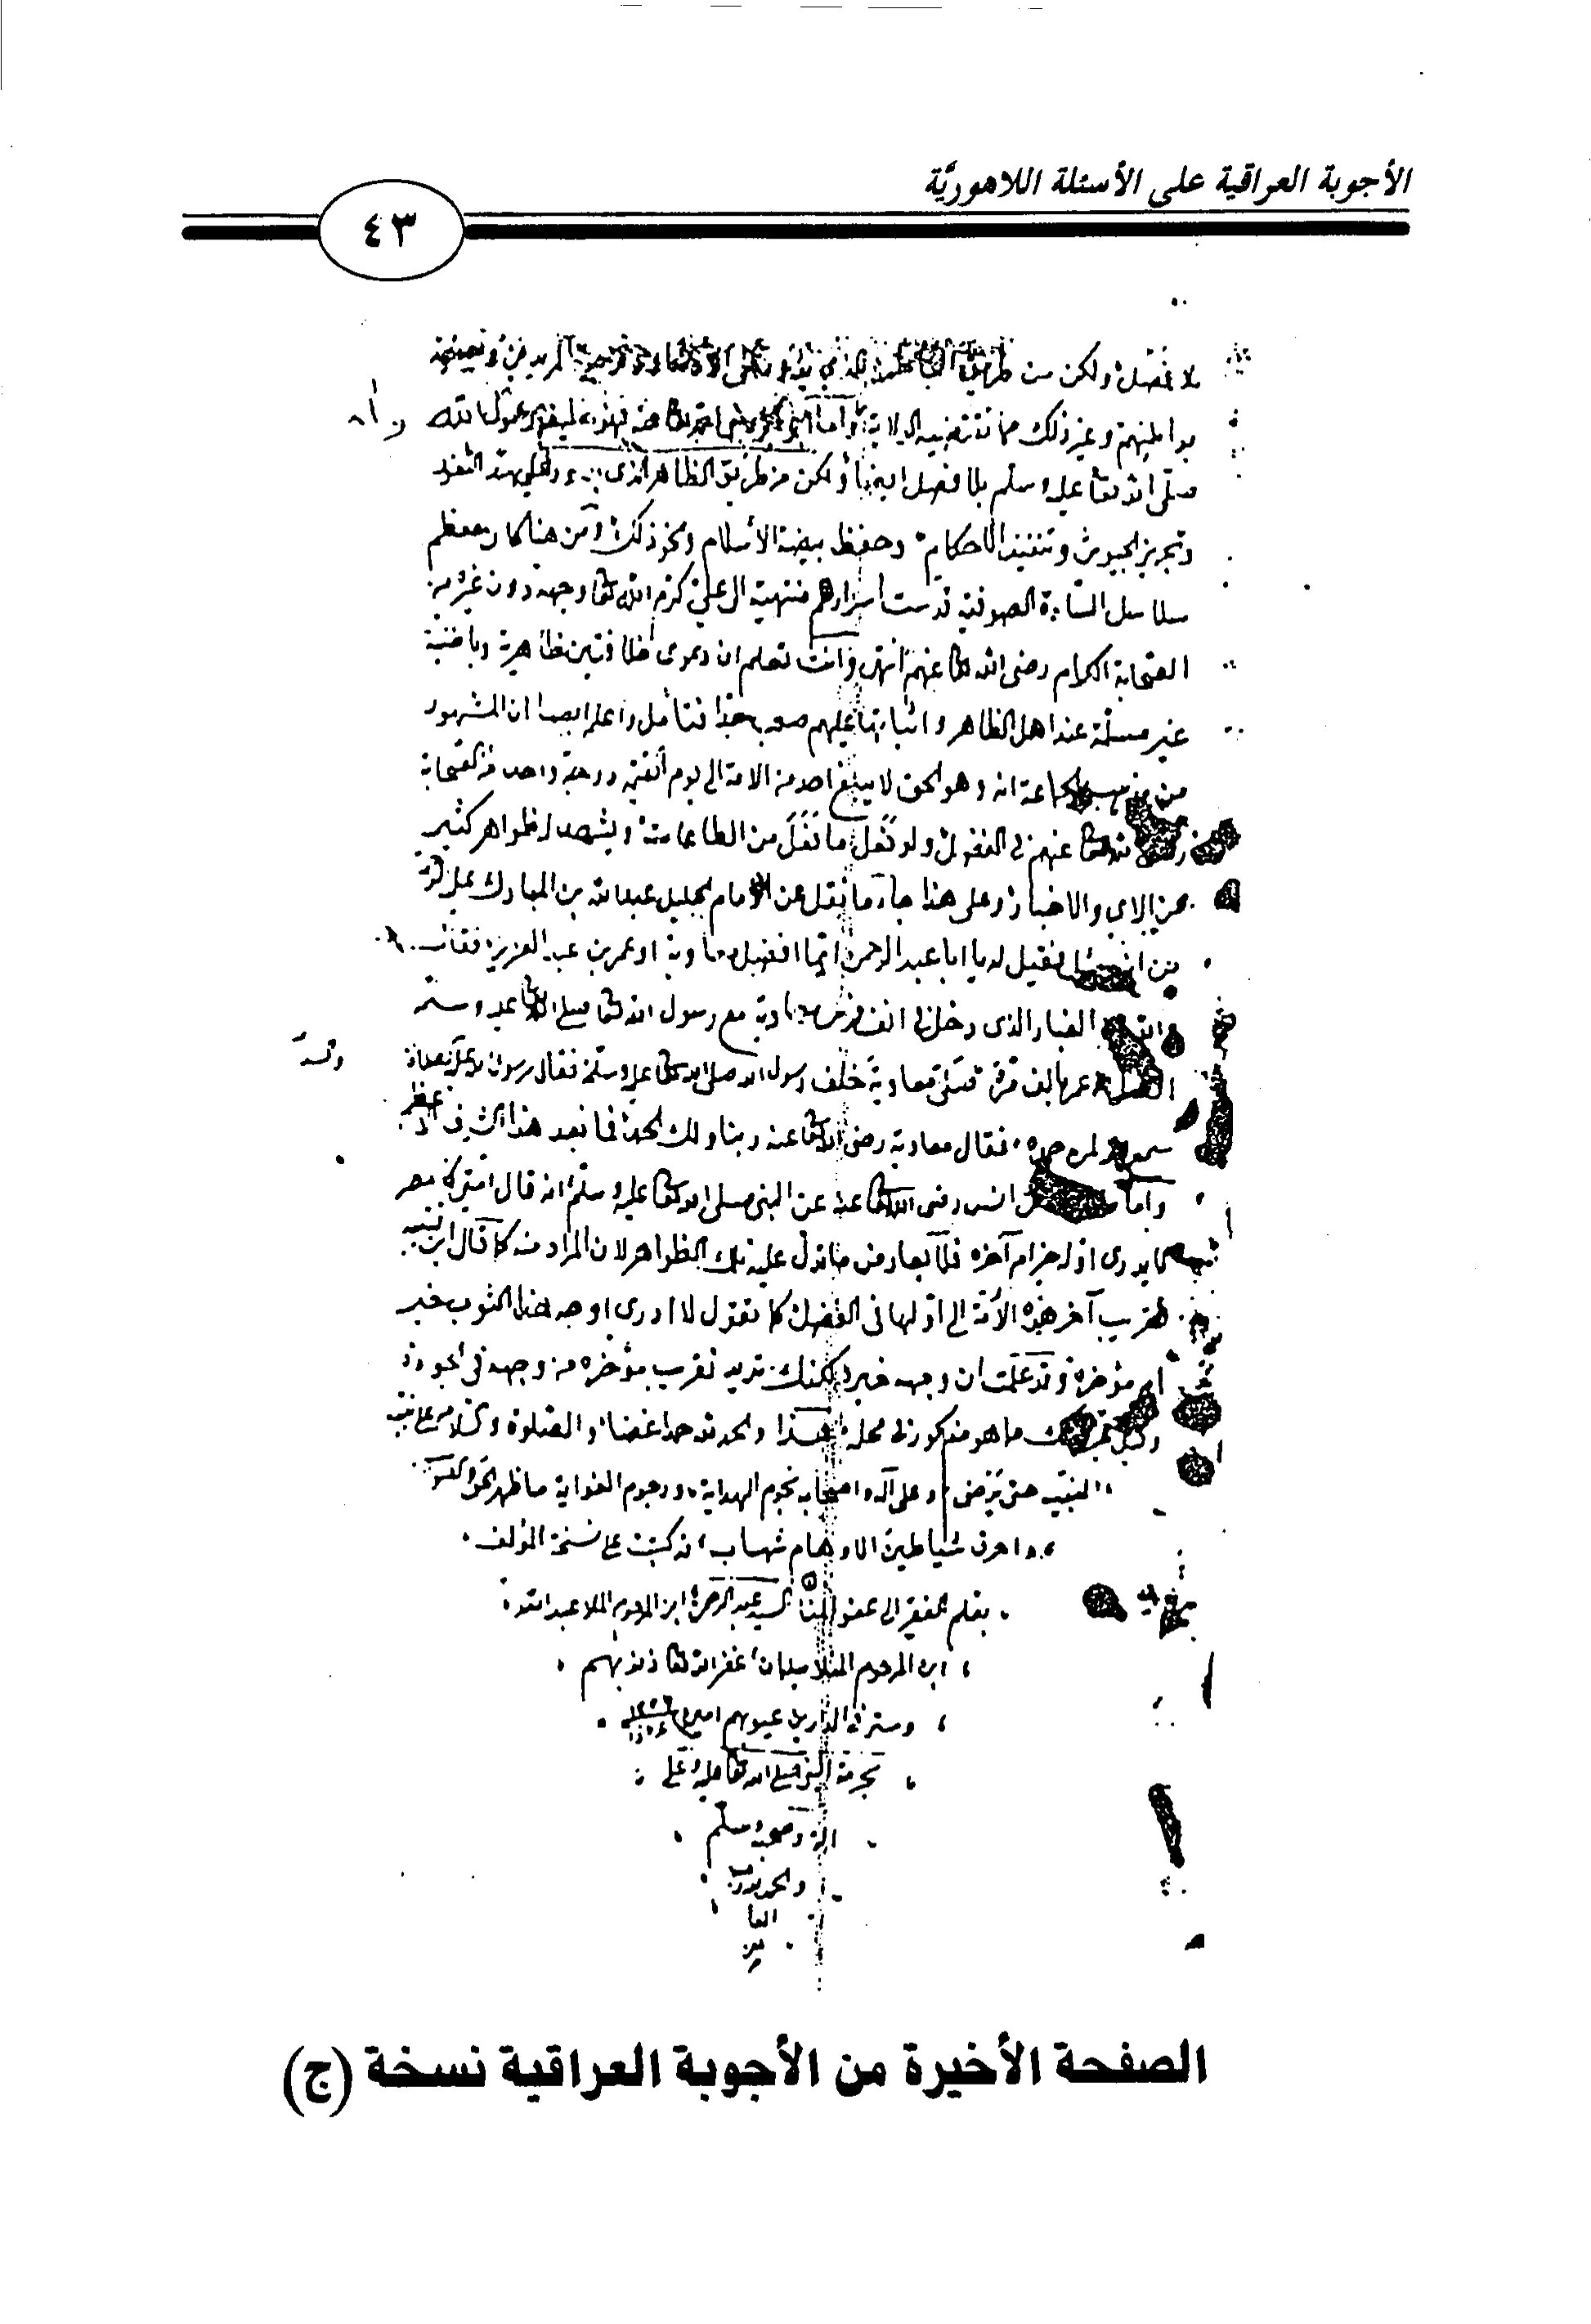 الأجوبة العراقية على الأسئلة اللاهوريَّة
٤٣
بلا فصل ولكن من طريق الباطن الذي المريدين وتصفية
بواطنهم وغير ذلك مما تقتضيه الولاية وأما خليفة رسول الله
صلى الله تعا عليه وسلم بلا فصل ايضا ولكن من طريق الظاهر الذي الثغور
وتجهيز الجيوش وتنفيذ الاحكام وحفظ بيضة الأسلام ونحو ذلك ومن هنا كان معظم
سلاسل السادة الصوفية قدست أسرارهم منتهية الى علي كرم الله تعا وجهه دون غيره من
الصحابة الكرام رضى الله تعا عنهم انتهى وانت تعلم ان دعوى خلافتين ظاهرية وباطنية
غير مسلمة عند اهل الظاهر واثباتها عليهم صعب جدا فتأمل واعلم ايضا ان المشهور
من الجماعة انه وهو الحق لا يبلغ احد من الامة الى يوم القيمة درجة واحد من الصحابة
تعا عنهم في الفضل ولو فعل ما فعل من الطاعات ويشهد له ظواهر كثير
من الاي والاخبار وعلى هذا جاء ما نقل عن الامام الجليل عبد الله بن المبارك
فقيل له يا ابا عبد الرحمن ايما افضل معاوية او عمر بن عبد العزيز فقال
الغبار الذى دخل في انف فرس معاوية مع رسول الله تعا صلى الله تعا عليه وسلم
افضل من عمر بالف مرة صلى معاوية خلف رسول الله صلى الله تعا عليه وسلم فقال رسول الله
سمع الله لمن حمده فقال معاوية رضى الله تعا عنه ربنا ولك الحمد فما بعد هذا الشرف الاعظم
وأما انس رضى الله تعا عنه عن النبي صلى الله تعا عليه وسلم انه قال امتي كالمطر
لا يدرى اوله خير ام آخره فلا يعارض ما تدل عليه تلك الظواهر لان المراد منه كما قال ابن قتيبه
تقريب آخر هذه الأمة الى اولها في الفضل كما تقول لا ادرى اوجه هذا الثوب خير
ام مؤخره وقد علمت ان وجهه خير ولكنك تريد تقريب مؤخره من وجهه في الجودة
وقيل ما هو مذكور في محله هذا والحمد لله حمدا غضا والصلوة والسلام على نبيه
النبيه حتى يرضى وعلى آله واصحابه نجوم الهداية ورجوم الغواية ما ظهر الحق
واحرق شياطين الاوهام شهاب قد كتبت على نسخة المؤلف
بقلم الفقير الى عفو المنان السيد عبد الرحمن ابن المرحوم الملا عبد الله
ابن المرحوم الملا سليمان غفر الله تعا ذنوبهم
وستر في الدارين عيوبهم امين
بحرمة النبي صلى الله تعا عليه وعلى
اله وصحبه وسلم
والحمد لله رب
العا
لمين
الصفحة الأخيرة من الأجوبة العراقية نسخة (ج)